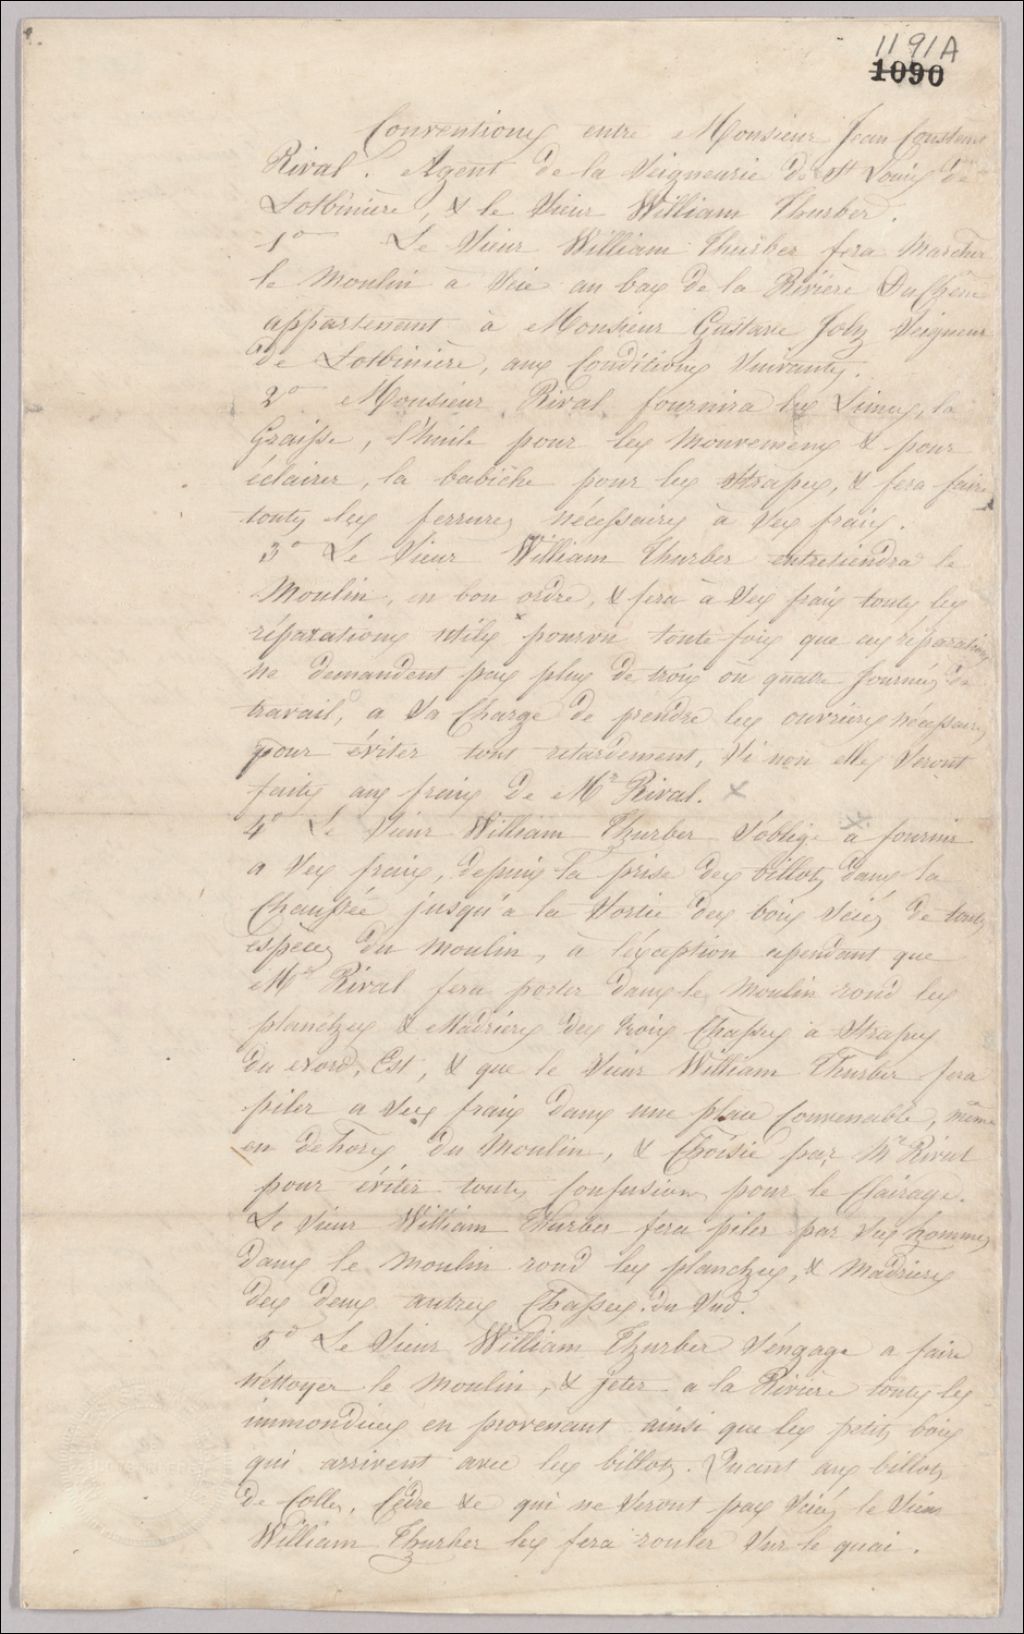 1191A
1090
Conventions entre Monsieur Jean Constant
Rival. Agent de la Seigneurie de St Louis de
Lotbinière, & le Sieur William Thurber.
1o Le Sieur William Thurber fera Marcher
le Moulin à Scie au bas de la Rivière DuChêne
appartenant à Monsieur Gustave Joly Seigneur
de Lotbinière, aux Conditions Suivantes.
2o Monsieur Rival fournira les Limes, la
Graisse, l'huile pour les Mouvemens & pour
éclairer, la babiche pour les Strapes, & fera faire
toutes les ferrures nécessaires à Ses frais.
3o Le Sieur William Thurber entretiendra le
Moulin, en bon ordre, & fera à Ses frais toutes les
réparations utiles pourvu toute fois que ces réparations
ne demandent pas plus de trois ou quatre Journées de
travail, a Sa Charge de prendre les ouvriers nécessaires
pour éviter tout retardement, Si non elles Seront
faites aux frais de Mr Rival. x
4o Le Sieur William Thurber S'oblige x a fournir
a Ses frais, depuis la prise des billots dans la
Chaussée jusqu'a la Sortie des bois Sciés de toutes
espèces du Moulin, a l'exception cependant que
Mr Rival fera porter dans le Moulin rond les
planches & Madriers des trois Chasses a Strapes
du Nord, Est, & que le Sieur William Thurber fera
piler a Ses frais dans une place Convenable, même
en dehors du Moulin, & Choisie par Mr Rival
pour éviter toutes Confusions pour le Clairage.
Le Sieur William Thurber fera piler par Ses hommes
dans le Moulin rond les planches, & Madriers
des deux autres Chasses du Sud.
5o Le Sieur William Thurber S'engage a faire
néttoyer le Moulin, & jeter a la Rivière toutes les
immondices en provenant ainsi que les petits bois
qui arrivent avec les billots. Quant aux billots
de Colle, Cèdre &c qui ne Seront pas Sciés le Sieur
William Thurber les fera rouler Sur le quai.